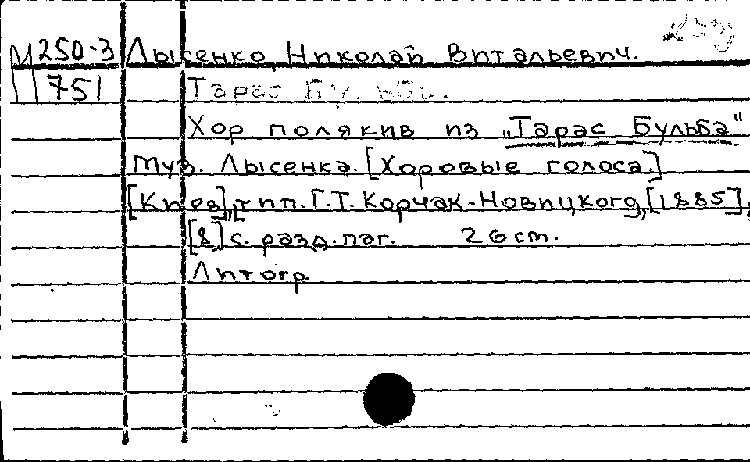 М 250-3 Лысенко, Николай Витальевич.
751 Тарас Бульба.
Хор полякив из „Тарас Бульба"
Муз. Лысенка. [Хоровые голоса.]
[Киев], тип. Г.Т. Корчак-Новицкого, [1885],
[8] с. разд. паг. 26 cm.
Литогр.